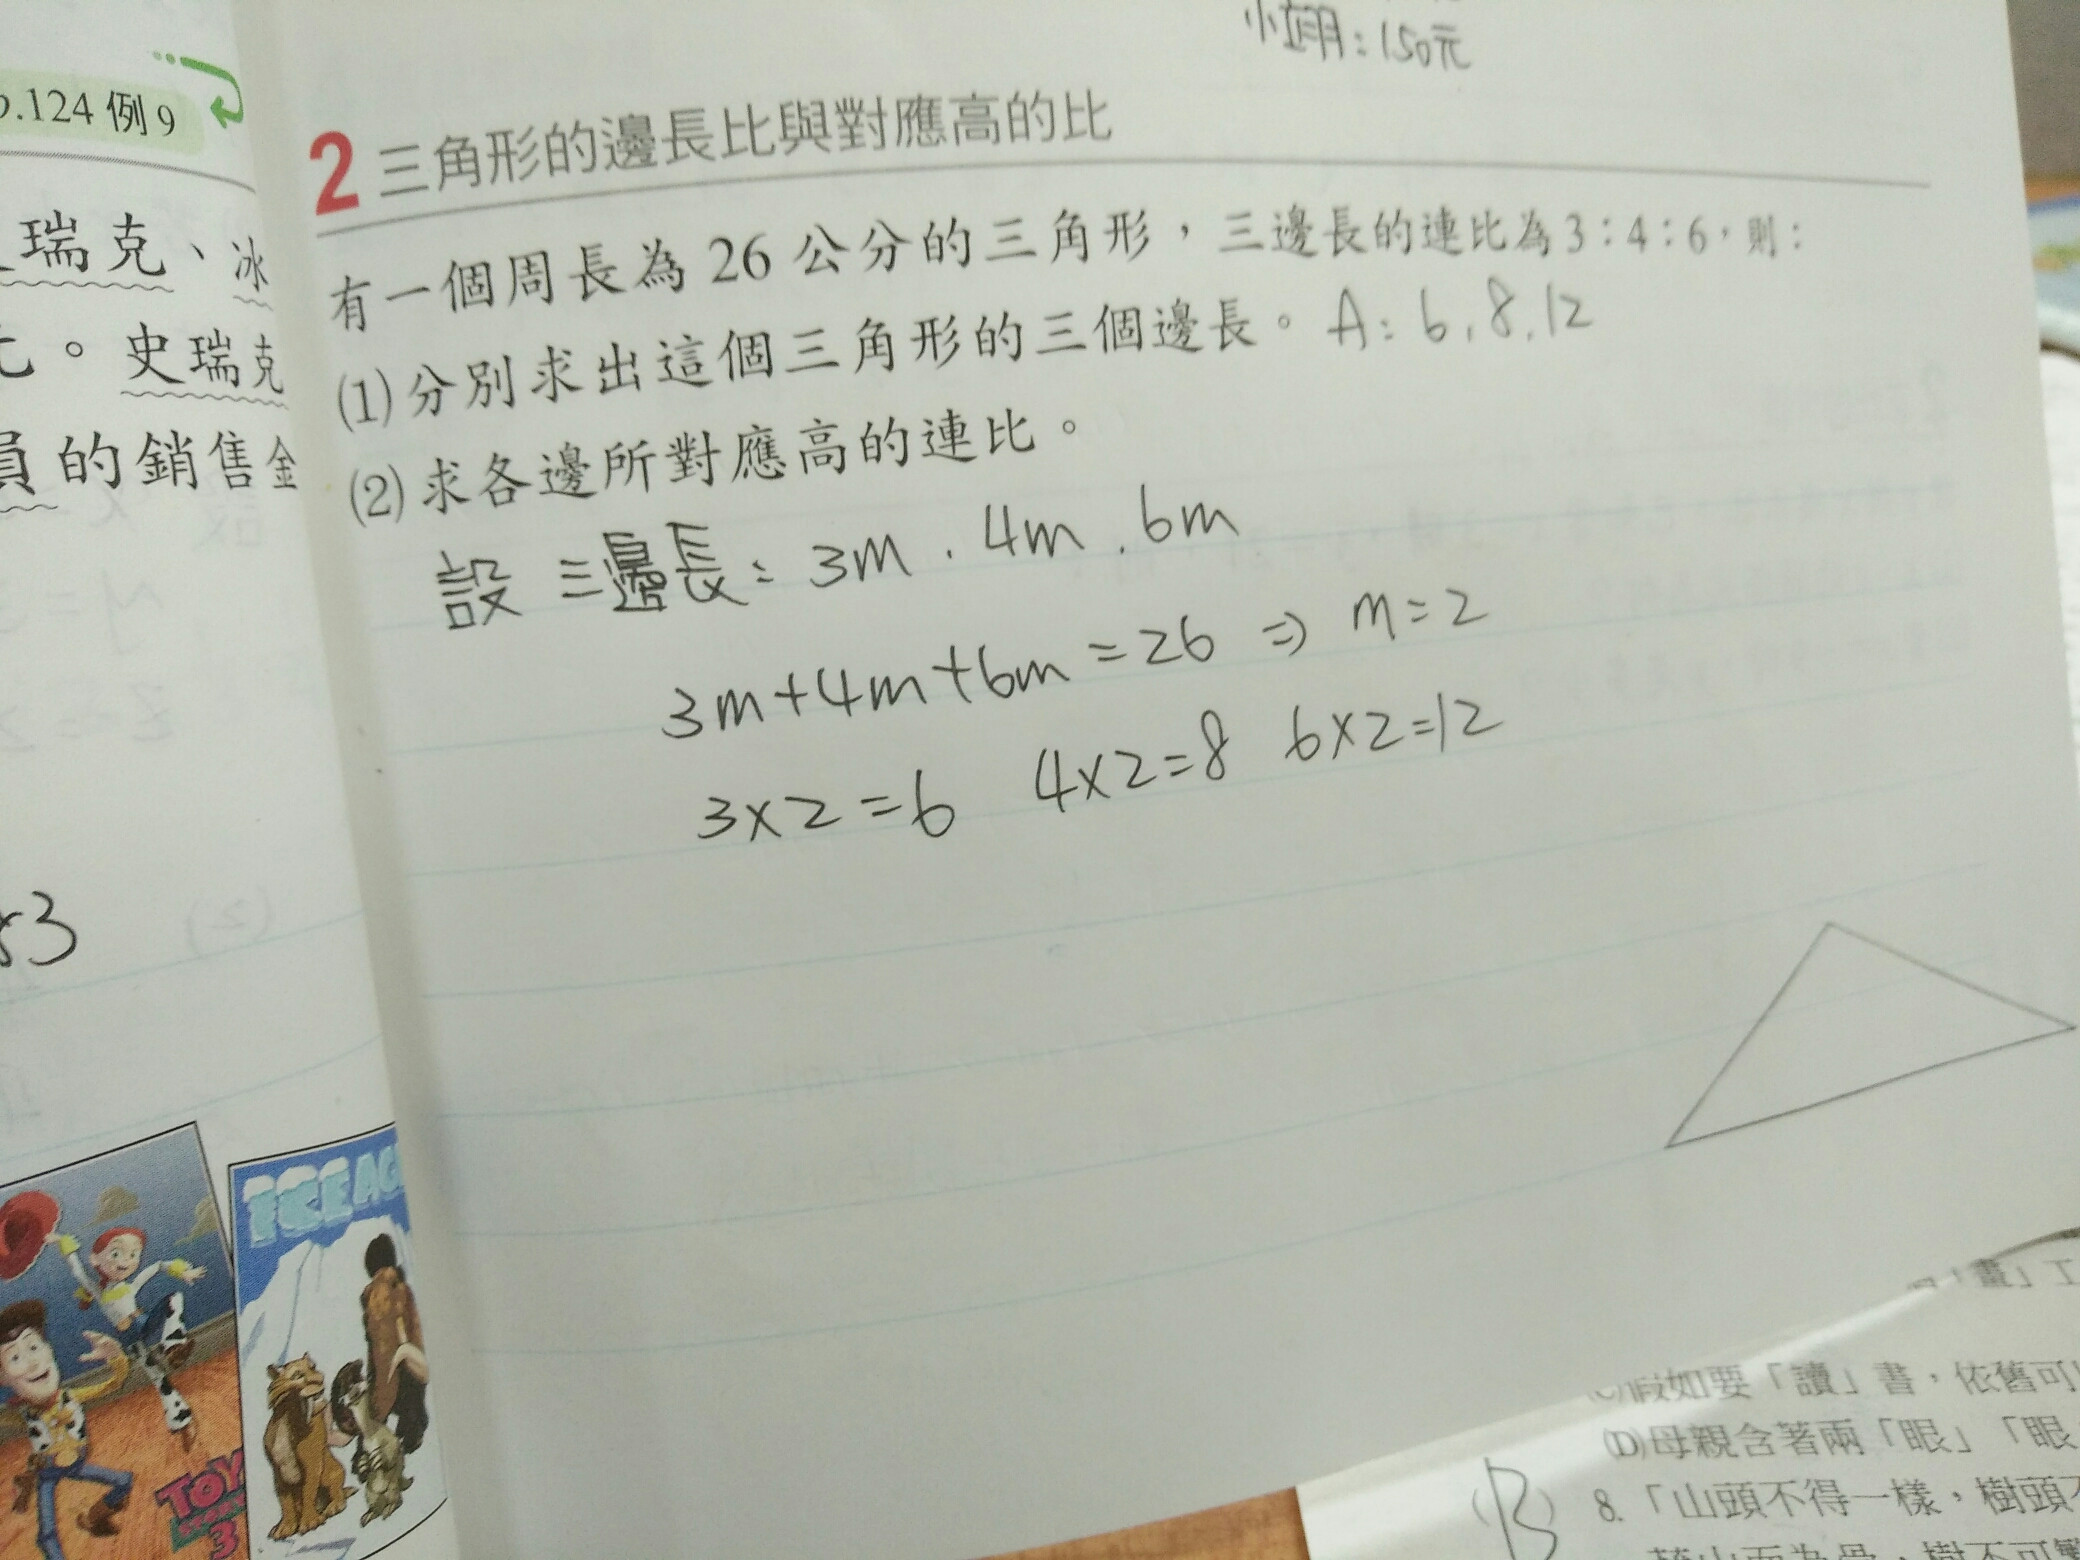 小翊:150元
p.124 例9
2 三角形的邊長比與對應高的比
瑞克、冰
有一個周長為 26 公分的三角形，三邊長的連比為 3:4:6，則:
(1) 分別求出這個三角形的三個邊長。 A: 6.8.12
。史瑞克
(2) 求各邊所對應高的連比。
員的銷售金
設 三邊長: 3m . 4m . 6m
3m+4m+6m=26 ⇒ m=2
3×2=6 4×2=8 6×2=12
×3
ICE AG
TOY
3
(C)假如要「讀」書，依舊可
(D)母親含著兩「眼」「眼
(B) 8.「山頭不得一樣，樹頭不